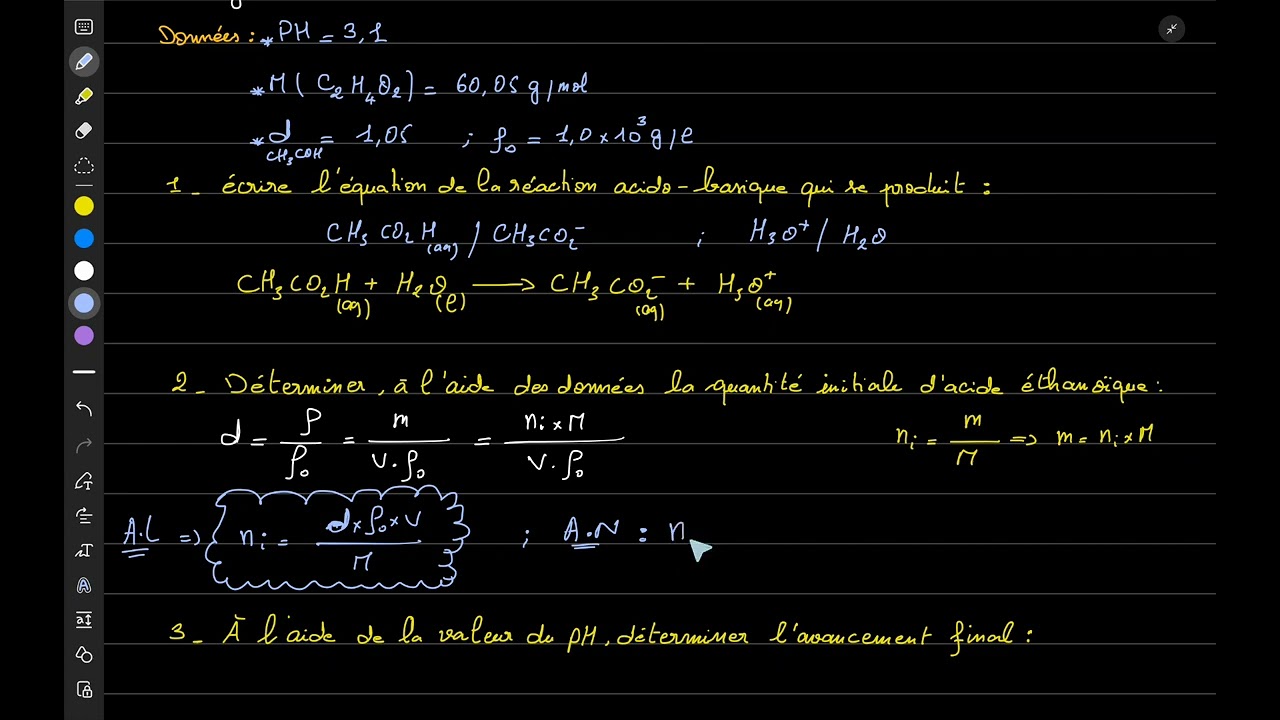 Données : * PH = 3,1
* M ( C₂H₄O₂ ) = 60,05 g/mol
* d CH₃COH = 1,05 ; ρ₀ = 1,0 × 10³ g/l
1 - écrire l'équation de la réaction acido-basique qui se produit :
CH₃CO₂H(aq) / CH₃CO₂⁻ ; H₃O⁺ / H₂O
CH₃CO₂H(aq) + H₂O(l) ⟶ CH₃CO₂⁻(aq) + H₃O⁺(aq)
2 - Déterminer, à l'aide des données la quantité initiale d'acide éthanoïque :
d = ρ/ρ₀ = m/(V.ρ₀) = (nᵢ × M)/(V.ρ₀) nᵢ = m/M ⇒ m = nᵢ × M
A.L ⇒ nᵢ = (d × ρ₀ × V)/M ; A.N : n
3 - À l'aide de la valeur du pH, déterminer l'avancement final :